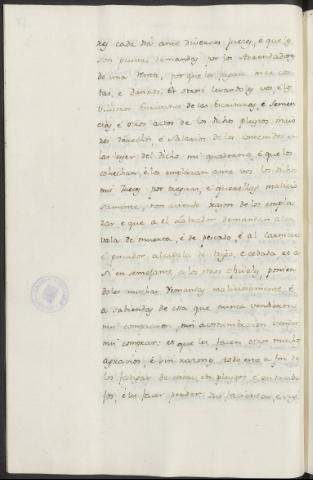 des cada dia ante diversos jueces, é que les
son puestas demandas por los Arrendadores
de una Renta, por que les fagan mas cos-
tas, é dannos. Et otrosi levando vos, é los
vuestros Escrivanos de las Escrituras, é Senten-
cias, é otros actos de los dicho pleytos mayo-
res derechos, é Salarios de los contenidos en
las leyes del dicho mi quaderno, é que los
cohechan, é los emplazan ante vos los dichos
mis Jueces por achaques, é querellas malicio-
samente, non aviendo razon de los empla-
zar é que a el Labrador demandan alca-
vala de muerta, é de pescado, é al Carnicero
é pescador alcavala de texidos, é cebada et a-
si en semejante a los otros oficiales, ponien-
doles muchas demandas maliciosamente, é
a sabiendas de cosa que nunca vendieron,
nin compraron, nin acostumbraron vender,
nin comprar: et que les facen otros muchos
agravios, é sin razones todo esto a fin de
los fatigar de costas, en pleytos, é en traba-
jos, é les facer perder sus faciendas, é